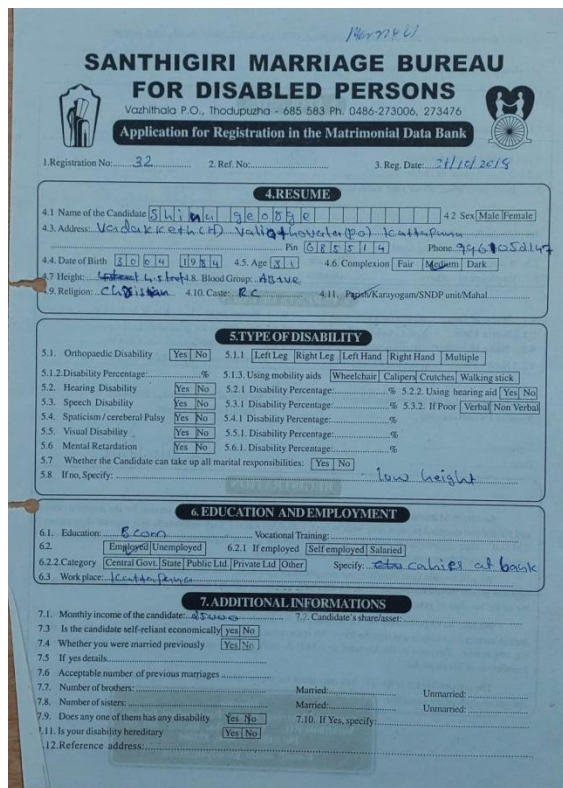 SANTHIGIRI MARRIAGE BUREAU
FOR DISABLED PERSONS
Vazhithala P.O., Thodupuzha - 685 583 Ph. 0486-273006, 273476
Application for Registration in the Matrimonial Data Bank
1.Registration No: 32 2. Ref. No: 3. Reg. Date: /10/2018
4.RESUME
4.1 Name of the Candidate Shinu george 4 2 Sex Male Female
4.3. Address: Vadakketh(H) Valiathovala(po) Kattappana
Pin 685514 Phone
4.4. Date of Birth 3004 1984 4.5. Age 31 4.6. Complexion Fair Medium Dark
4.7 Height: 4.8. Blood Group: ABtive
4.9. Religion: Christian 4.10. Caste: RC 4.11. Parish/Karayogam/SNDP unit/Mahal
5.TYPE OF DISABILITY
5.1. Orthopaedic Disability Yes No 5.1.1 Left Leg Right Leg Left Hand Right Hand Multiple
5.1.2.Disability Percentage: % 5.1.3. Using mobility aids Wheelchair Calipers Crutches Walking stick
5.2. Hearing Disability Yes No 5.2.1 Disability Percentage: % 5.2.2. Using hearing aid Yes No
5.3. Speech Disability Yes No 5.3.1 Disability Percentage: % 5.3.2. If Poor Verbal Non Verbal
5.4. Spaticism / cereberal Palsy Yes No 5.4.1 Disability Percentage: %
5.5. Visual Disability Yes No 5.5.1. Disability Percentage: %
5.6 Mental Retardation Yes No 5.6.1. Disability Percentage: %
5.7 Whether the Candidate can take up all marital responsibilities: Yes No
5.8 If no, Specify: low height
6. EDUCATION AND EMPLOYMENT
6.1. Education: B com Vocational Training:
6.2. Employed Unemployed 6.2.1 If employed Self employed Salaried
6.2.2.Category Central Govt. State Public Ltd. Private Ltd Other Specify: cahier at bank
6.3 Work place: Kattappana
7.ADDITIONAL INFORMATIONS
7.1. Monthly income of the candidate: 25000 7.2. Candidate's share/asset:
7.3 Is the candidate self-reliant economically yes No
7.4 Whether you were married previously Yes No
7.5 If yes details
7.6 Acceptable number of previous marriages
7.7. Number of brothers: Married: Unmarried:
7.8. Number of sisters: Married: Unmarried:
7.9. Does any one of them has any disability Yes No 7.10. If Yes, specify:
7.11. Is your disability hereditary Yes No
.12.Reference address: